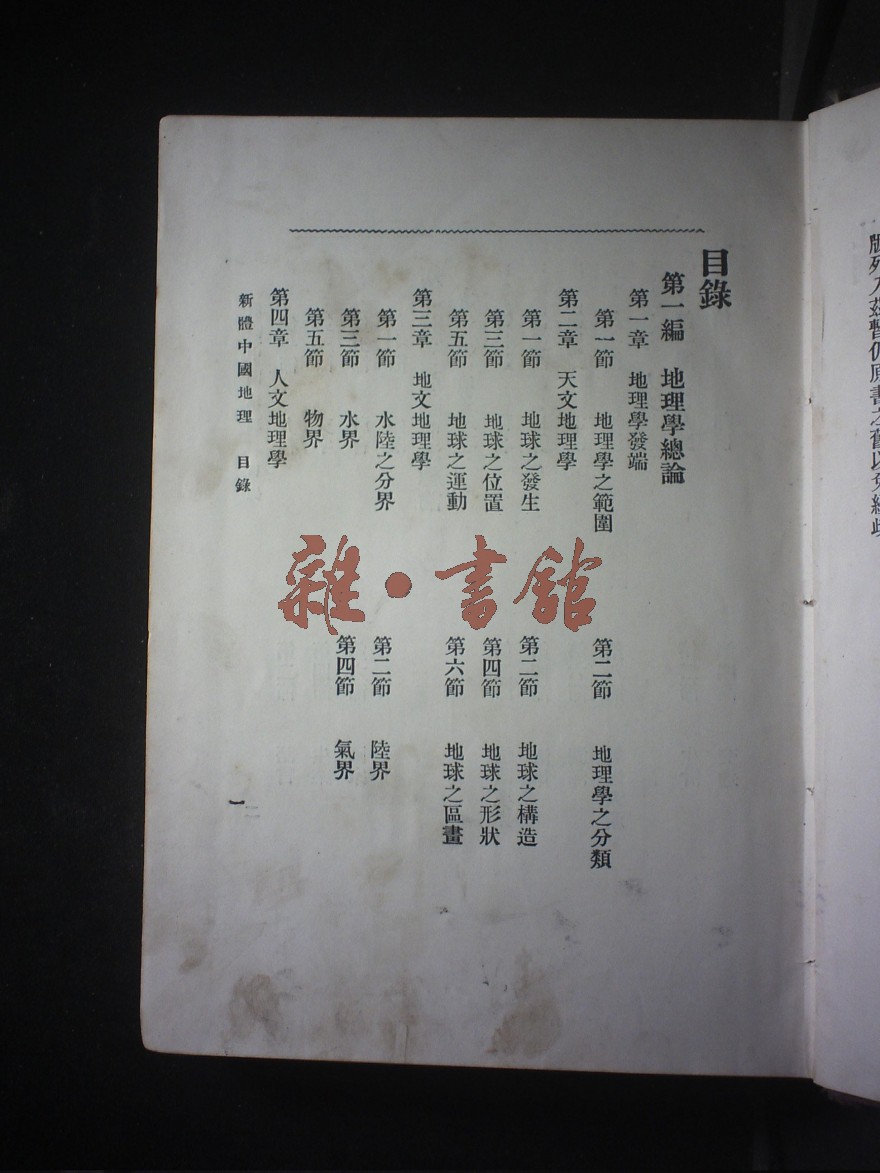 目錄
第一編　地理學總論
第一章　地理學發端
第一節　地理學之範圍　第二節　地理學之分類
第二章　天文地理學
第一節　地球之發生　第二節　地球之構造
第三節　地球之位置　第四節　地球之形狀
第五節　地球之運動　第六節　地球之區畫
第三章　地文地理學
第一節　水陸之分界　第二節　陸界
第三節　水界　第四節　氣界
第五節　物界
第四章　人文地理學
新體中國地理　目錄
一
雜•書館